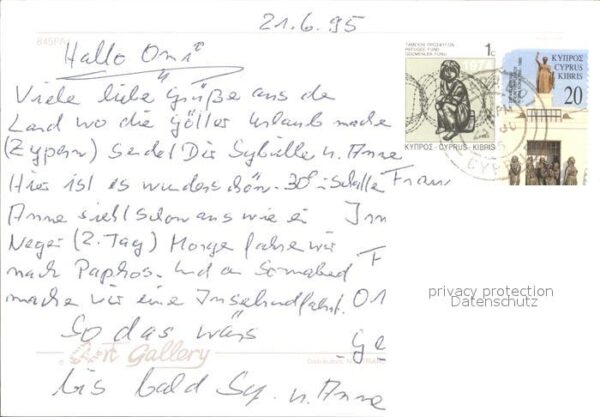 21.6.95
Hallo Omi
Viele liebe Grüße aus de
Land wo die Götter Urlaub mache
(Zypern) sendet Dir Sybille u. Anne
Hier ist es wunderschön. 30° i. Schatten
Anne sieht schon aus wie ein
Neger (2. Tag) Morge fahre wir
nach Paphos. Und am Sonnabed
mache wir eine Inselrundfahrt.
So das wärs
bis bald Sy. u. Anne
Frau
F
01
Art Gallery
1c
1974
ΚΥΠΡΟΣ - CYPRUS - KIBRIS
ΚΥΠΡΟΣ
CYPRUS
KIBRIS
20
privacy protection
Datenschutz